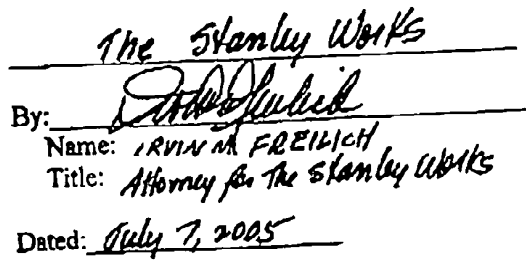 The Stanley Works
By:
Name: IRVIN M FREILICH
Title: Attorney for The Stanley Works
Dated: July 7, 2005